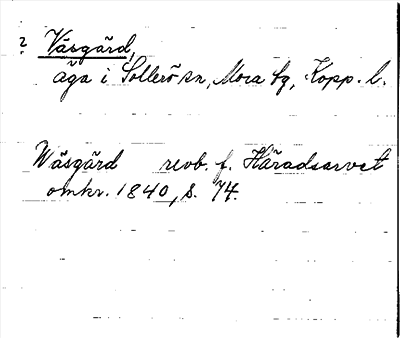 ? Väsgärd,
äga i Sollerö sn, Mora tg, Kopp. l.
Wäsgärd revb. f. Häradsarvet
omkr. 1840, s. 74.